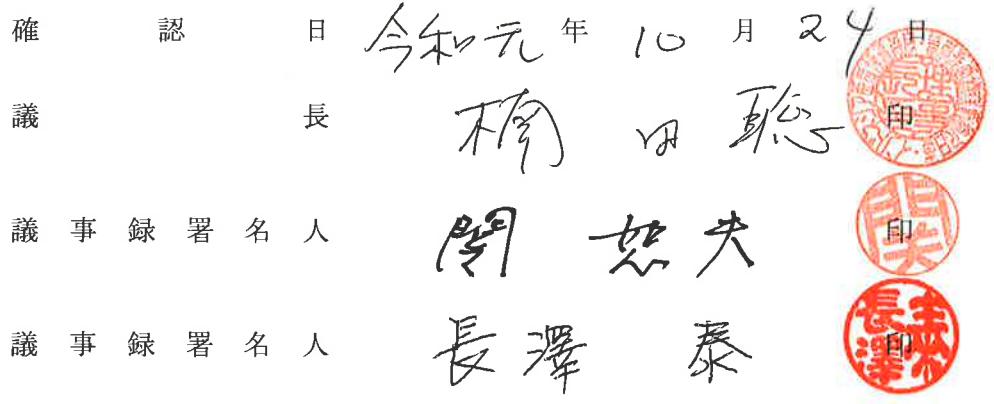 確認日 令和元年10月24日
議長 楠田聡 印
議事録署名人 関恕夫 印
議事録署名人 長澤泰 印